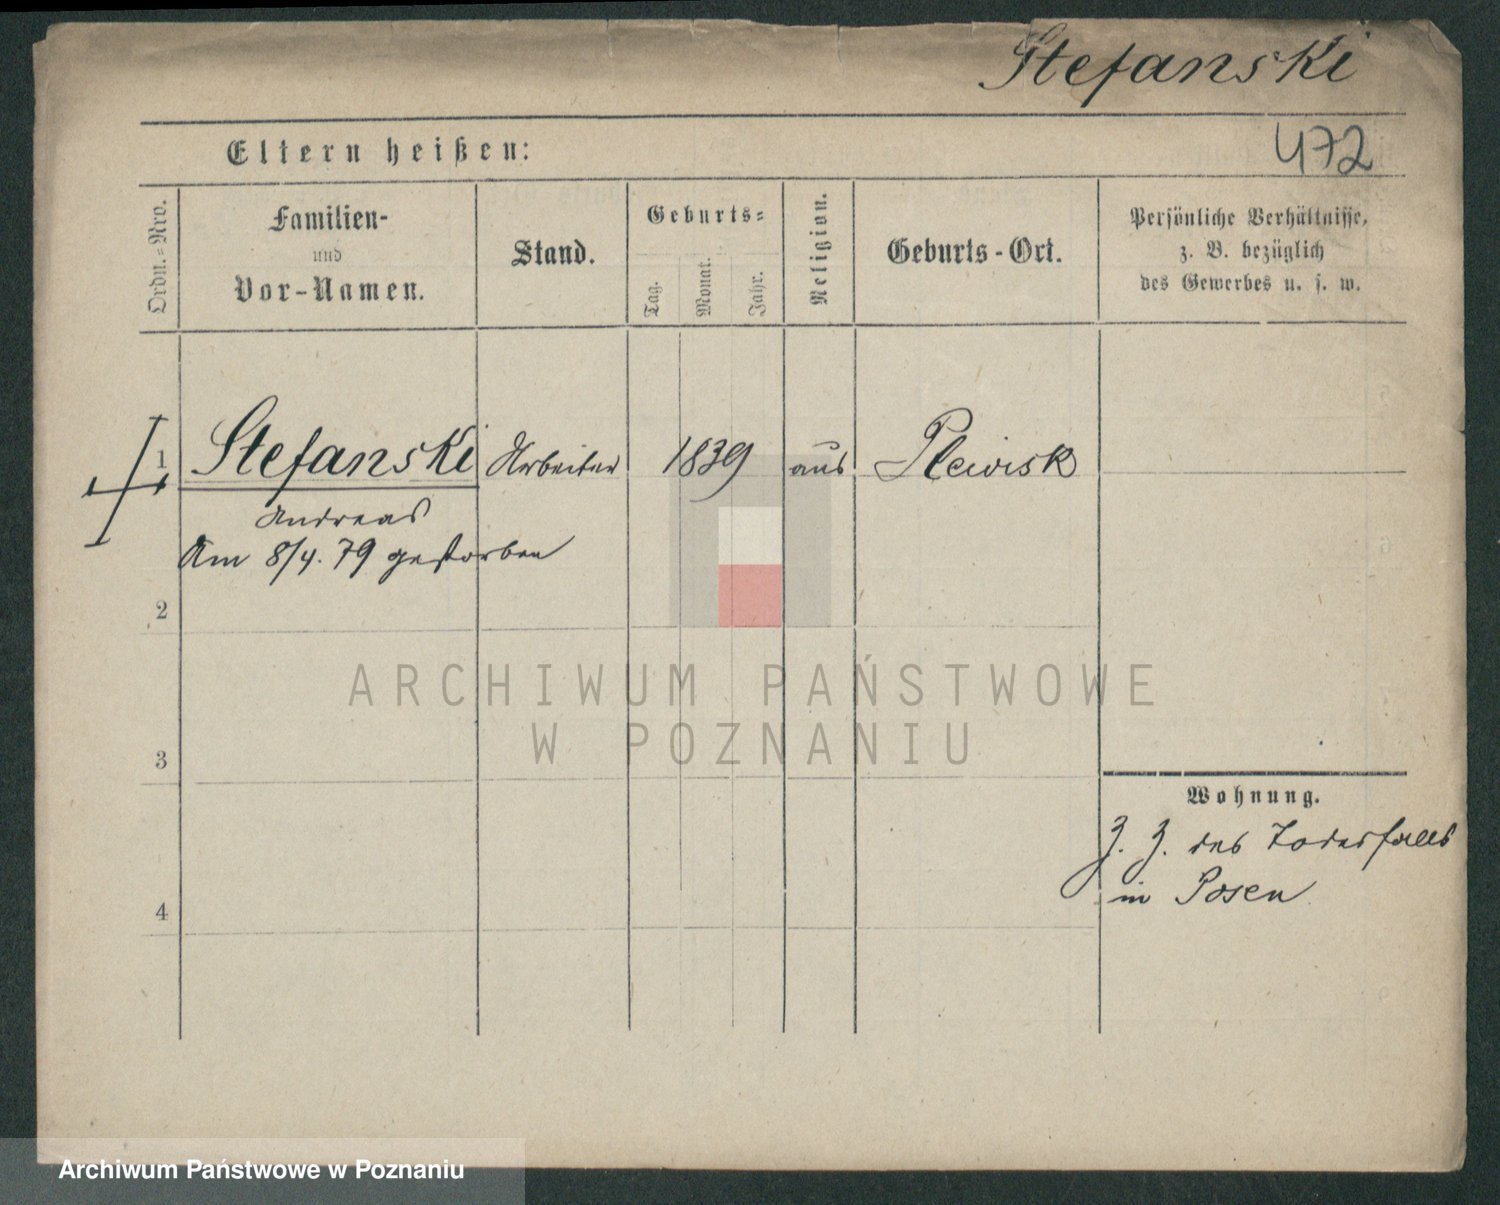 Stefanski
472
Eltern heißen:
Ordn.=Nro.
Familien-
und
Vor-Namen.
Stand.
Geburts=
Tag.
Monat.
Jahr.
Religion.
Geburts-Ort.
Persönliche Verhältnisse,
z. B. bezüglich
des Gewerbes u. s. w.
1 Stefanski Arbeiter 1839 aus Plewisk
Andreas
Am 8/4. 79 gestorben
2
3
4
Wohnung.
Z. Z. des Todesfalls
in Posen
ARCHIWUM PAŃSTWOWE
W POZNANIU
Archiwum Państwowe w Poznaniu